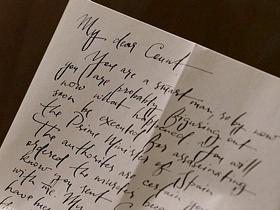 My dear Count
You are a smart man, so by now
you are probably figuring out
now what happened. You will
soon be executed for assassinating
the Prime Minister of Spain.
The authorities are certain you
ordered the murder because
know you sent
with me. My
have me